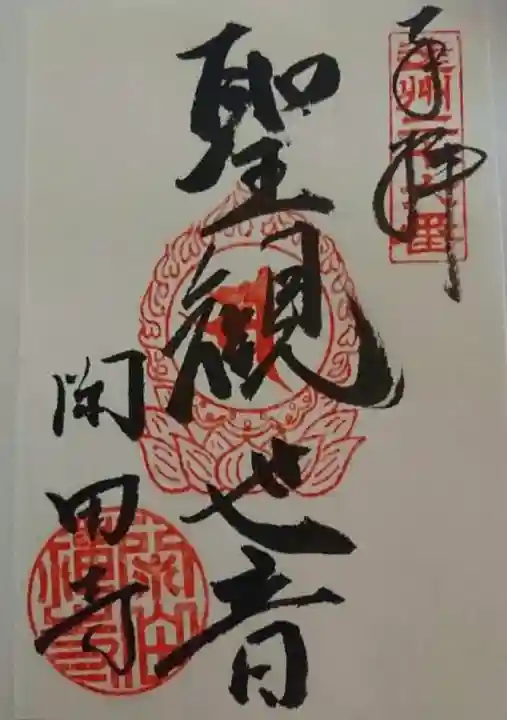 奉拝
聖観世音
閑田寺